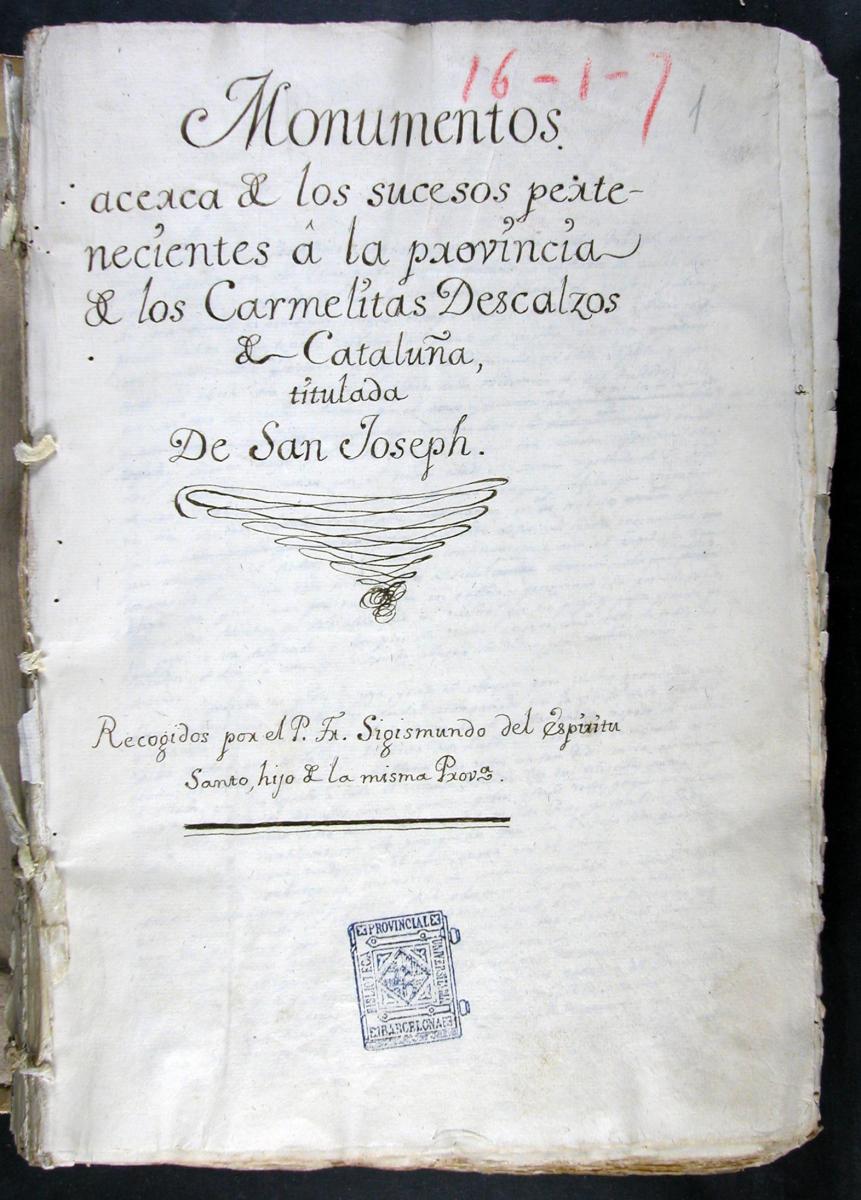 16-1-7
1
Monumentos
acerca de los sucesos perte-
necientes â la provincia
de los Carmelitas Descalzos
de Cataluña,
titulada
De San Joseph.
Recogidos por el P. Fr. Sigismundo del Espiritu
Santo, hijo de la misma Prov.ª.
PROVINCIAL
BIBLIOTECA
UNIVERSITARIA
BARCELONA